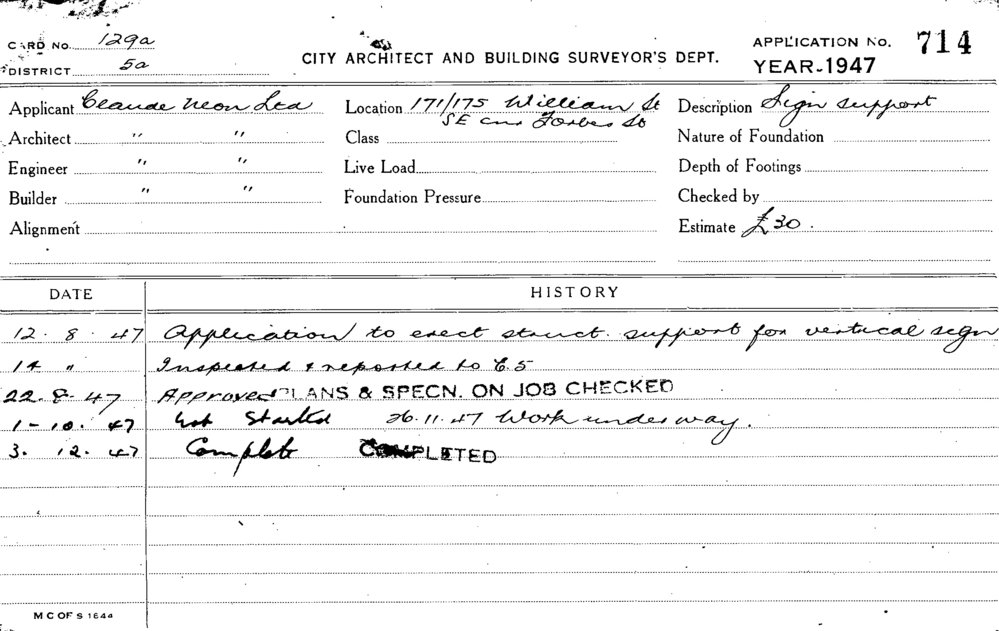 CARD No. 129a
DISTRICT 5a
CITY ARCHITECT AND BUILDING SURVEYOR'S DEPT.
APPLICATION No. 714
YEAR-1947
Applicant Claude Neon Ltd
Location 171/175 William St
SE cnr Forbes St
Description Sign support
Architect " "
Class
Nature of Foundation
Engineer " "
Live Load
Depth of Footings
Builder " "
Foundation Pressure
Checked by
Alignment
Estimate £30.
DATE HISTORY
12.8.47 Application to erect struct. support for vertical sign
14 " Inspected & reported to C.S
22.8.47 Approved PLANS & SPECN. ON JOB CHECKED
1-10.47 Not Started 26.11.47 Work under way.
3.12.47 Complete COMPLETED
M C OF S 1644